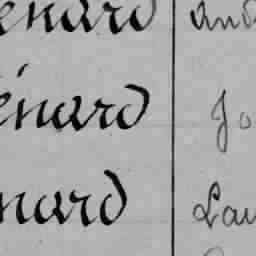 énard And
énard Jo
nard Lau